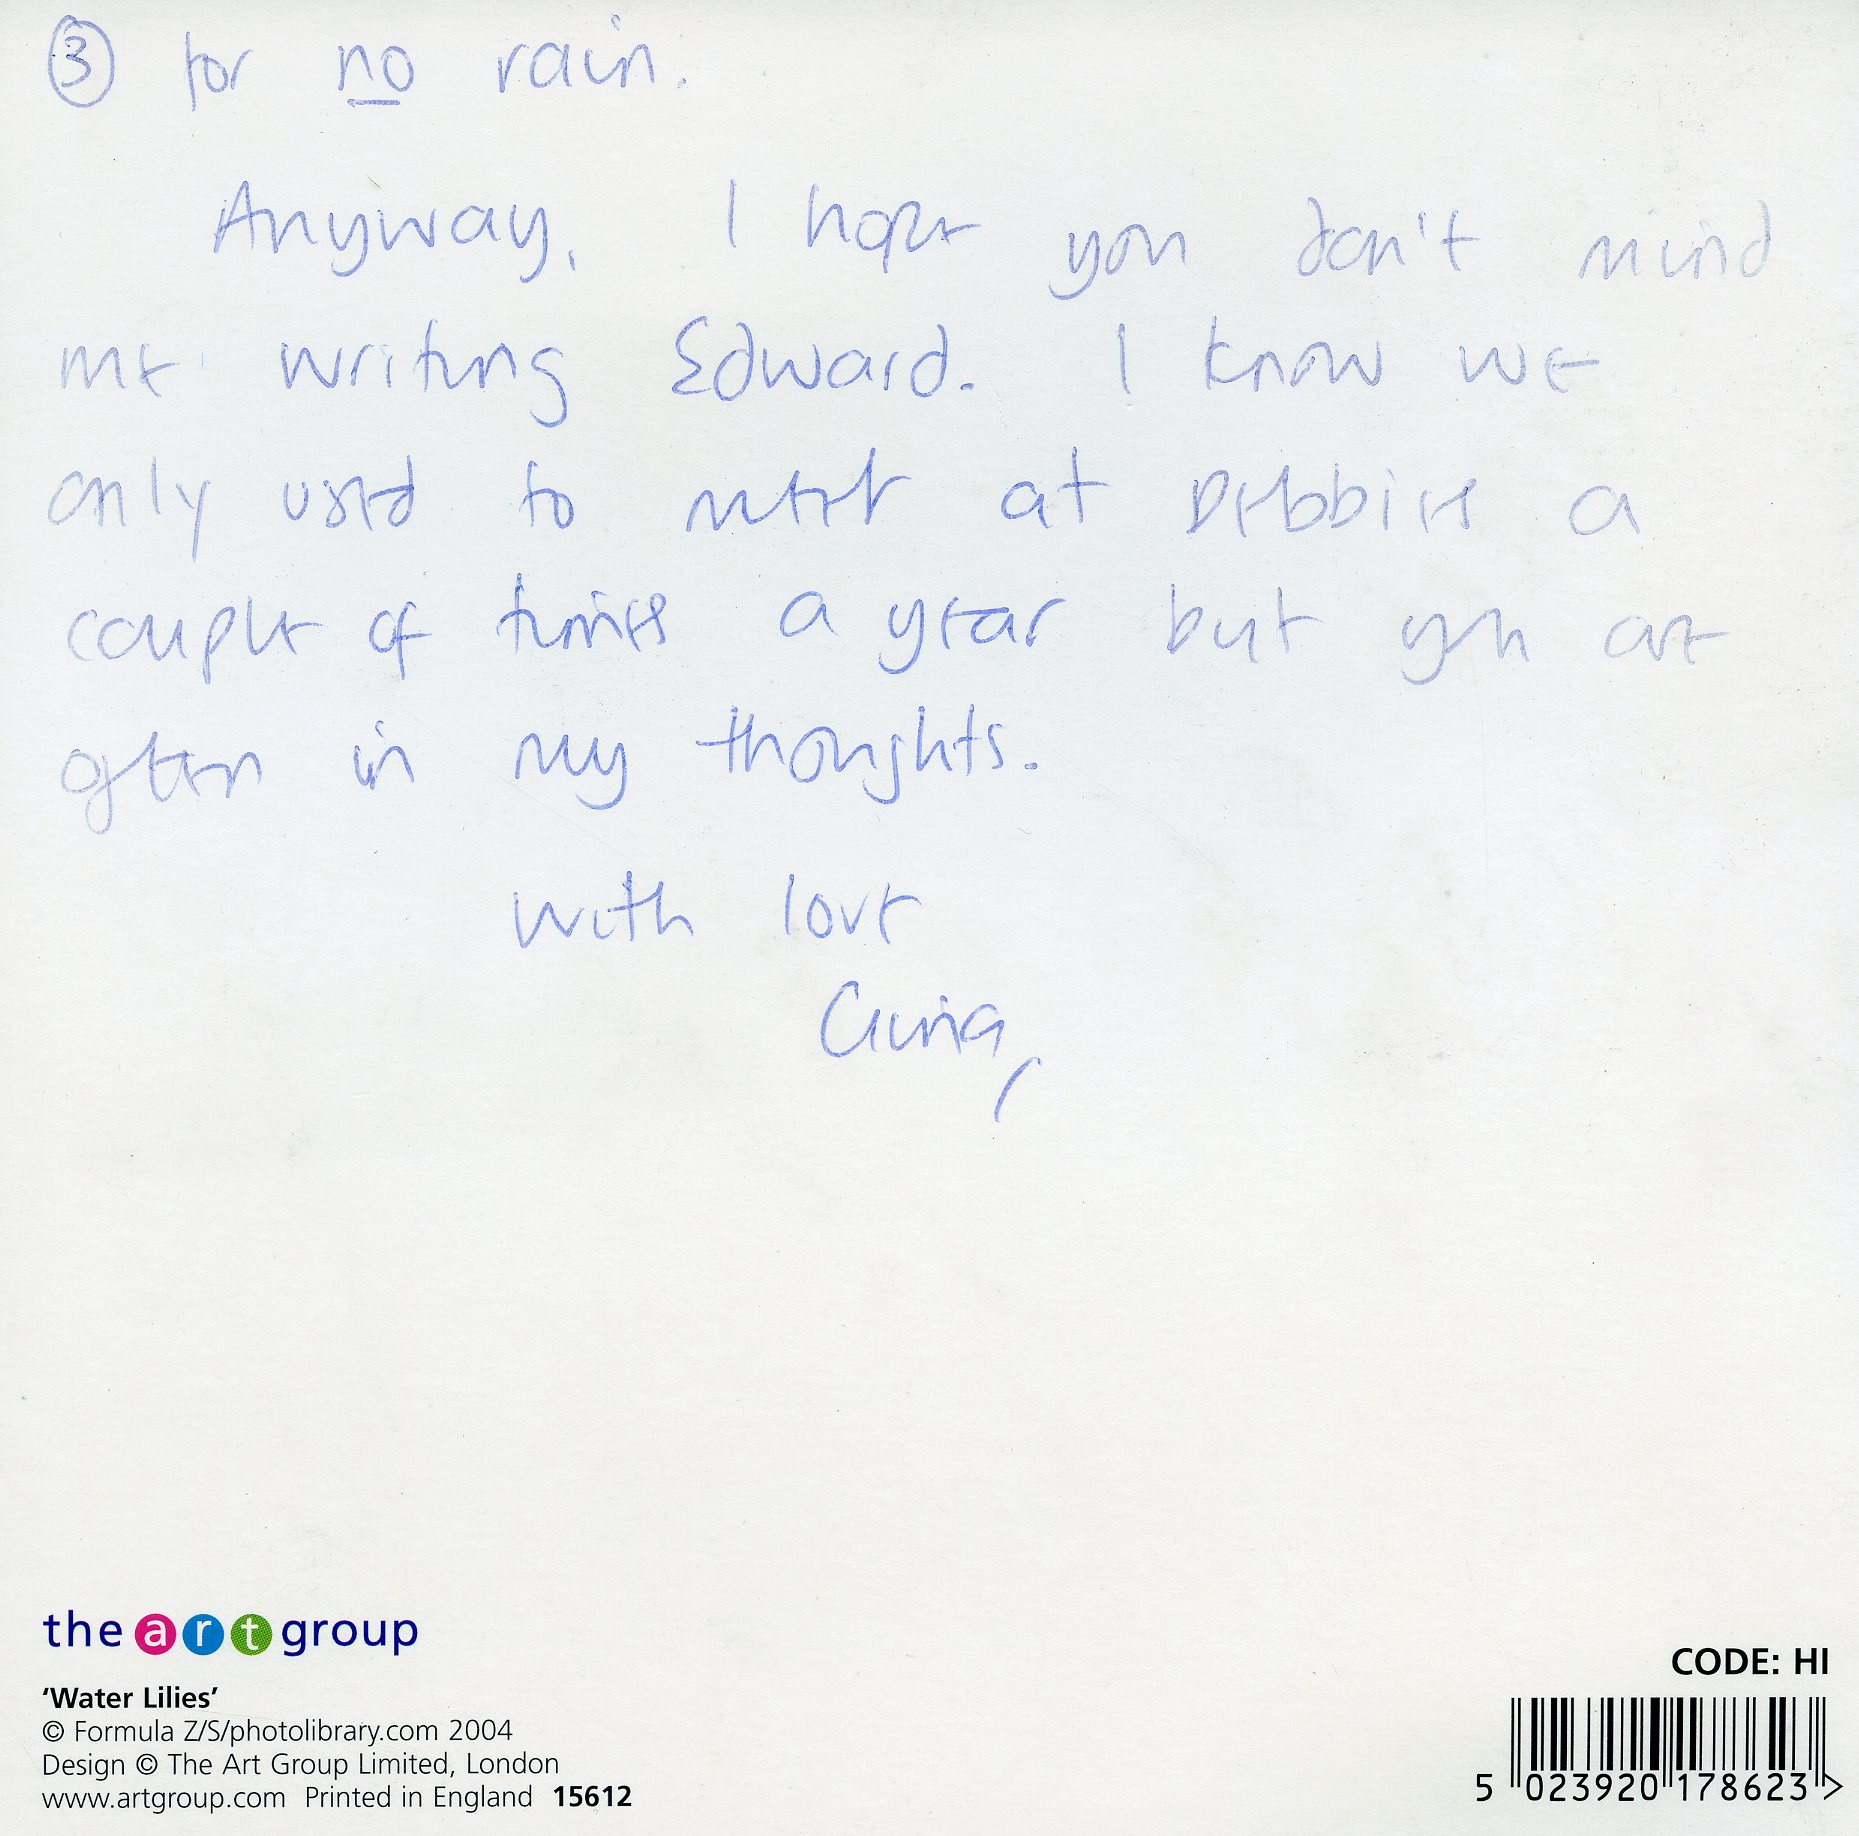 ③ for no rain.
Anyway, I hope you don't mind
me writing Edward. I know we
only used to meet at Debbies a
couple of times a year but you are
often in my thoughts.
with love
the art group
CODE: HI
'Water Lilies'
© Formula Z/S/photolibrary.com 2004
Design © The Art Group Limited, London
www.artgroup.com Printed in England 15612
5 023920 178623 >